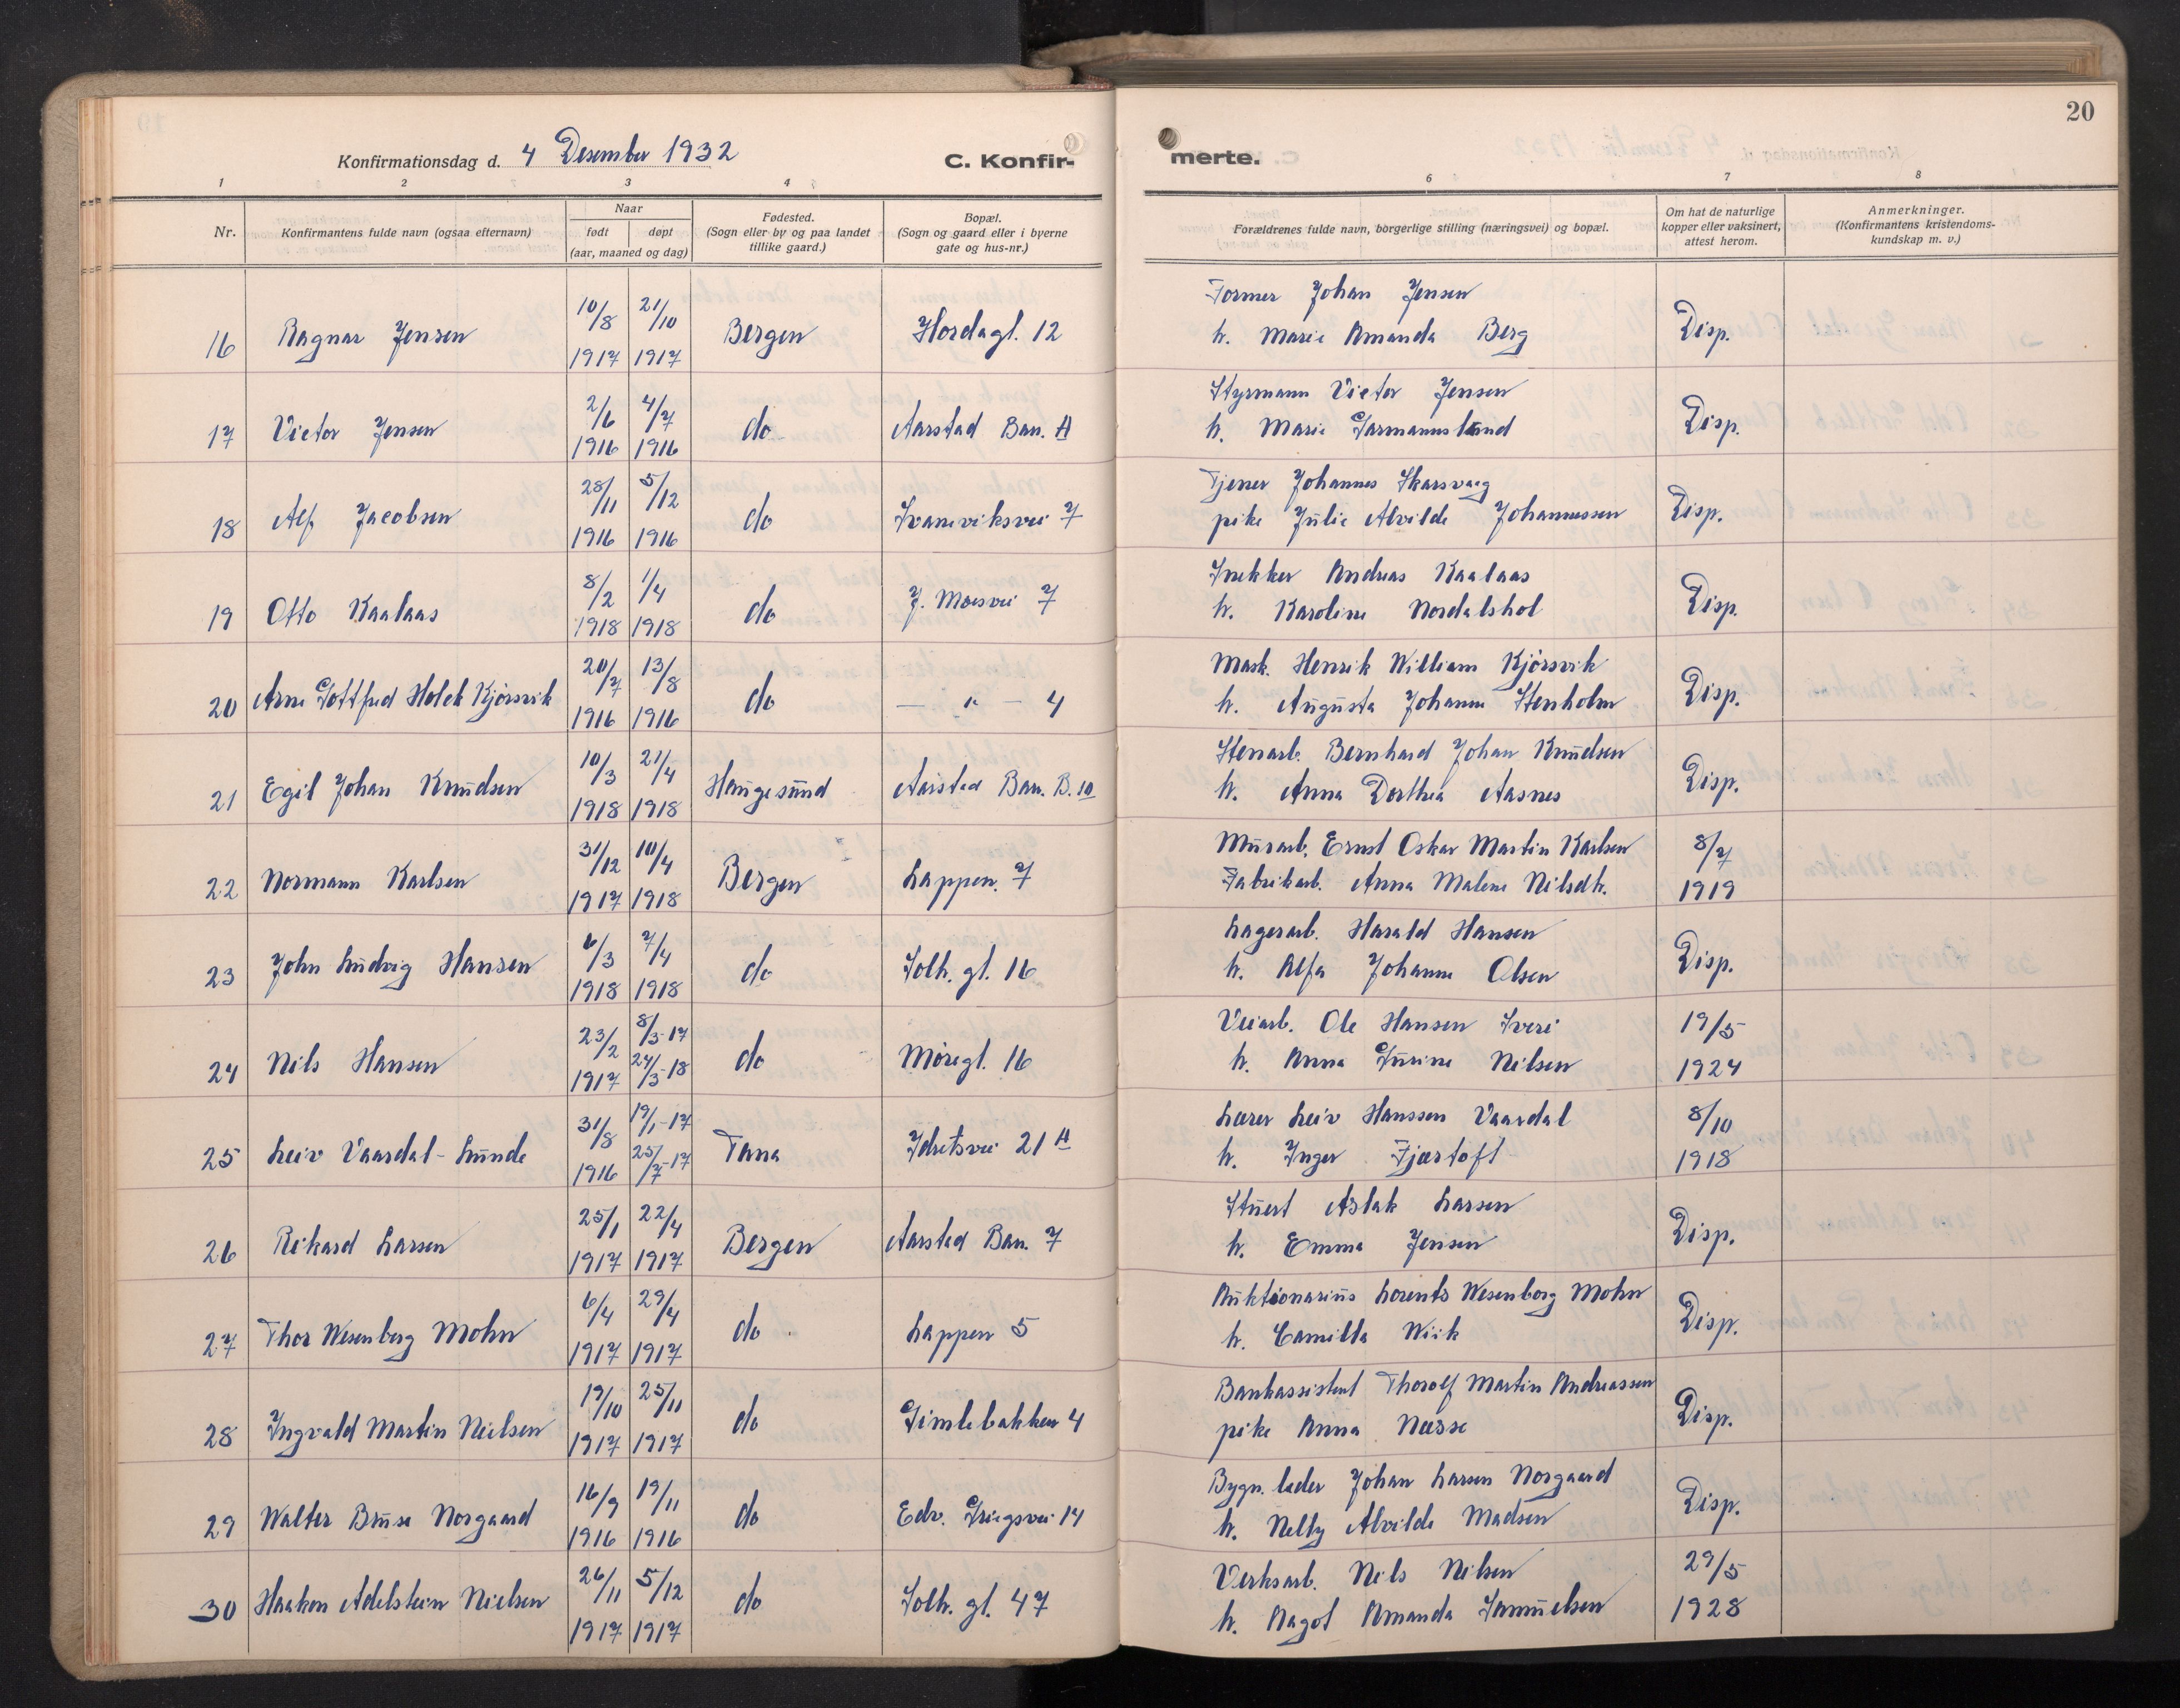 20
Konfirmationsdag d. 4 Desember 1932
C. Konfir-
merte.
1 2 3 4 6 7 8
Nr.
Konfirmantens fulde navn (ogsaa efternavn)
Naar
født døpt
(aar, maaned og dag)
Fødested.
(Sogn eller by og paa landet
tillike gaard.)
Bopæl.
(Sogn og gaard eller i byerne
gate og hus-nr.)
Forældrenes fulde navn, borgerlige stilling (næringsvei) og bopæl.
Om hat de naturlige
kopper eller vaksinert,
attest herom.
Anmerkninger.
(Konfirmantens kristendoms-
kundskap m. v.)
10/8 21/10 Former Johan Jensen
16 Ragnar Jensen Bergen Hordagt. 12 h. Marie Amanda Berg Disp.
1917 1917
2/6 4/7 Styrmann Victor Jensen
17 Victor Jensen do Aarstad Bar. A h. Marie Garmannslund Disp.
1916 1916
28/11 5/12 Tjener Johannes Skarsvaag
18 Alf Jacobsen do Svaneviksvei 7 pike Julie Alvilde Johannessen Disp.
1916 1916
8/2 1/4 Snekker Andreas Kaalaas
19 Otto Kaalaas do J. Moesvei 7 h. Karoline Nordalshol Disp.
1918 1918
20/7 13/8 Mask. Henrik William Kjörsvik
20 Arne Gottfred Holck Kjörsvik do — " — 4 h. Augusta Johanne Stenholm Disp.
1916 1916
10/3 21/4 Stenarb. Bernhard Johan Knudsen
21 Egil Johan Knudsen Haugesund Aarstad Bar. B. 10 h. Anna Dorthea Aasnes Disp.
1918 1918
31/12 10/4 Murarb. Ernst Oskar Martin Karlsen 8/7
22 Normann Karlsen Bergen Lappen. 7 Fabrikarb. Anna Malene Nilsdtr. 1919
1917 1918
6/3 7/4 Lagerarb. Harald Hansen
23 John Ludvig Hansen do Solh. gt. 16 h. Alfa Johanne Olsen Disp.
1918 1918
23/2 8/3-17 Veiarb. Ole Hansen Sveri 19/5
24 Nils Hansen do Möregt. 16 h. Anna Gurine Nilsen 1924
1917 24/3-18
31/8 19/1-17 Lærer Leiv Hanssen Vaardal 8/10
25 Leiv Vaardal-Lunde Tana Idretsvei 21 A h. Inger Fjærtoft 1918
1916 25/7-17
25/1 22/4 Stuert Aslak Larsen
26 Rikard Larsen Bergen Aarstad Bar. 7 h. Emma Jensen Disp.
1917 1917
6/4 29/4 Auktionarius Lorents Wesenberg Mohn
27 Thor Wesenberg Mohn do Lappen 5 h. Camilla Wiik Disp.
1917 1917
19/10 25/11 Bankassistent Thorolf Martin Andreassen
28 Ingvald Martin Neilsen do Gimlebakken 4 pike Anna Næsse Disp.
1917 1917
16/9 19/11 Bygn. leder Johan Larsen Norgaard
29 Walter Bruse Norgaard do Edv. Griegsvei 14 h. Nelly Alvilde Madsen Disp.
1916 1916
26/11 5/12 Verksarb. Nils Nilsen 29/5
30 Haakon Adelstein Nielsen do Solh. gt. 47 h. Aagot Amanda Samuelsen 1928
1917 1917